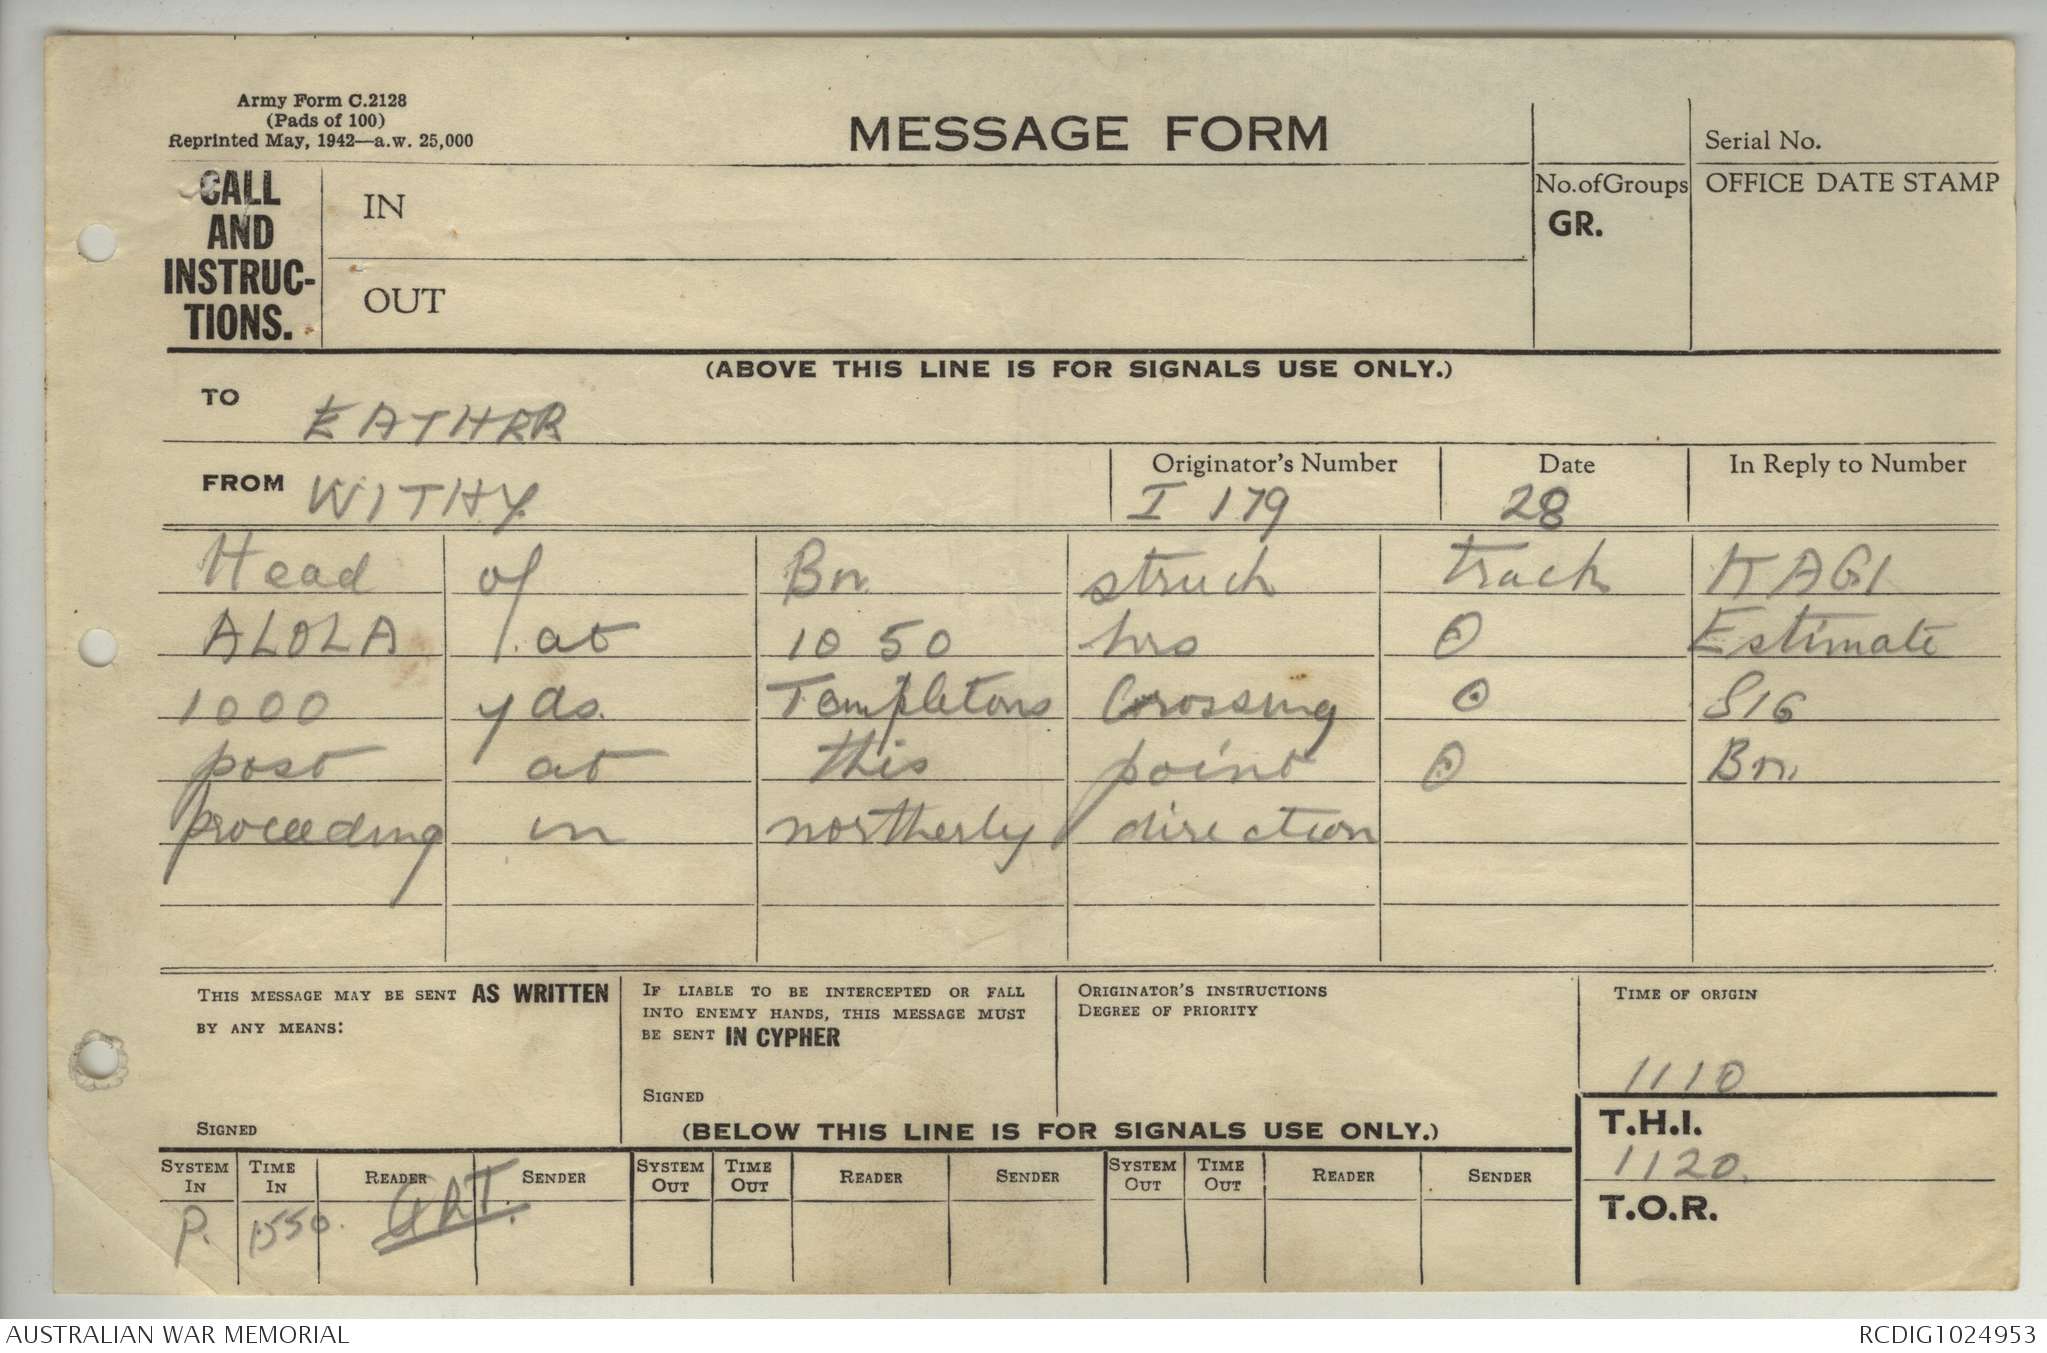 Army Form C.2128
(Pads of 100)
Reprinted May, 1942—a.w. 25,000
MESSAGE FORM
Serial No.
CALL AND INSTRUC-TIONS.
IN
OUT
No. of Groups GR.
OFFICE DATE STAMP
(ABOVE THIS LINE IS FOR SIGNALS USE ONLY.)
TO EATHER
FROM WITHY
Originator's Number I 179
Date 28
In Reply to Number
Head of Bn. struck track KAGI
ALOLA at 1050 hrs ⊙ Estimate
1000 yds. Templetons Crossing ⊙ SIG
post at this point ⊙ Bn.
proceeding in northerly direction
THIS MESSAGE MAY BE SENT AS WRITTEN
BY ANY MEANS:
SIGNED
IF LIABLE TO BE INTERCEPTED OR FALL
INTO ENEMY HANDS, THIS MESSAGE MUST
BE SENT IN CYPHER
SIGNED
ORIGINATOR'S INSTRUCTIONS
DEGREE OF PRIORITY
TIME OF ORIGIN
1110
(BELOW THIS LINE IS FOR SIGNALS USE ONLY.)
T.H.I.
1120.
T.O.R.
SYSTEM IN TIME IN READER SENDER SYSTEM OUT TIME OUT READER SENDER SYSTEM OUT TIME OUT READER SENDER
P. 1550.
AUSTRALIAN WAR MEMORIAL
RCDIG1024953